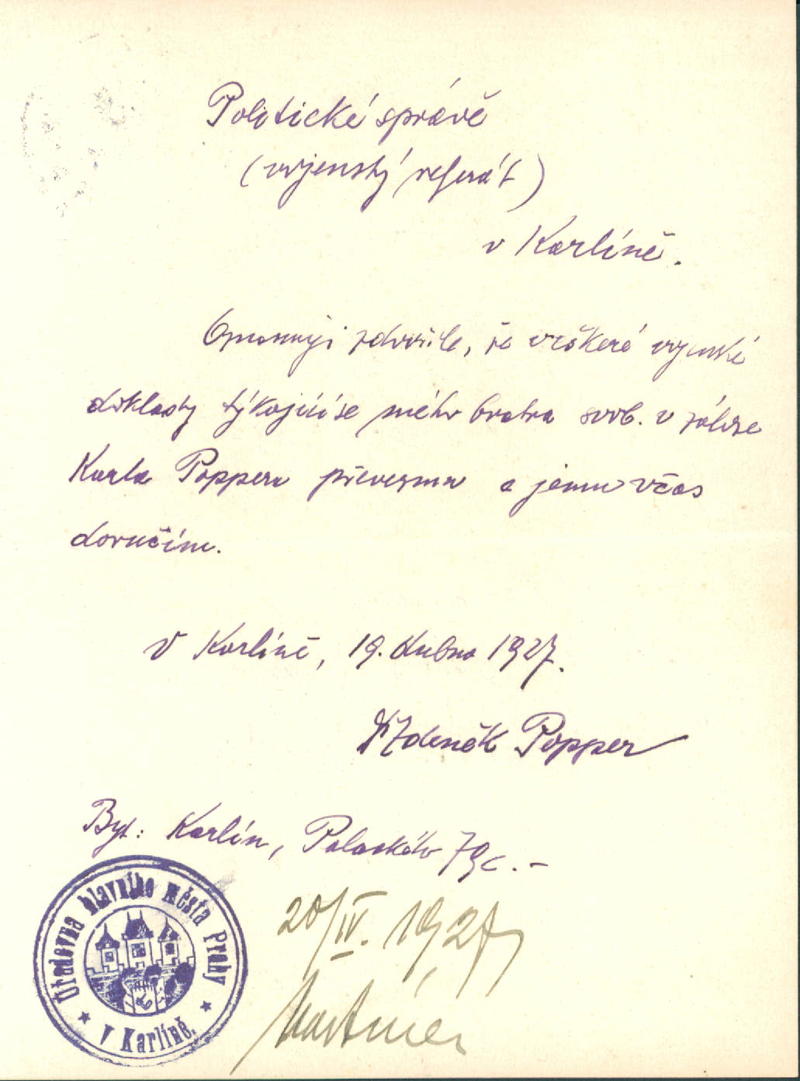 Politické správě
(vojenský referát)
v Karlíně.
Oznamuji zdvořile, že veškeré vojenské
doklady týkající se mého bratra svob. v záloze
Karla Poppera převezmu a jemu včas
doručím.
V Karlíně, 19. dubna 1927.
Zdeněk Popper
Byt: Karlín, Palackého 79c.-
Úřadovna hlavního města Prahy
v Karlíně.
20/IV. 1927